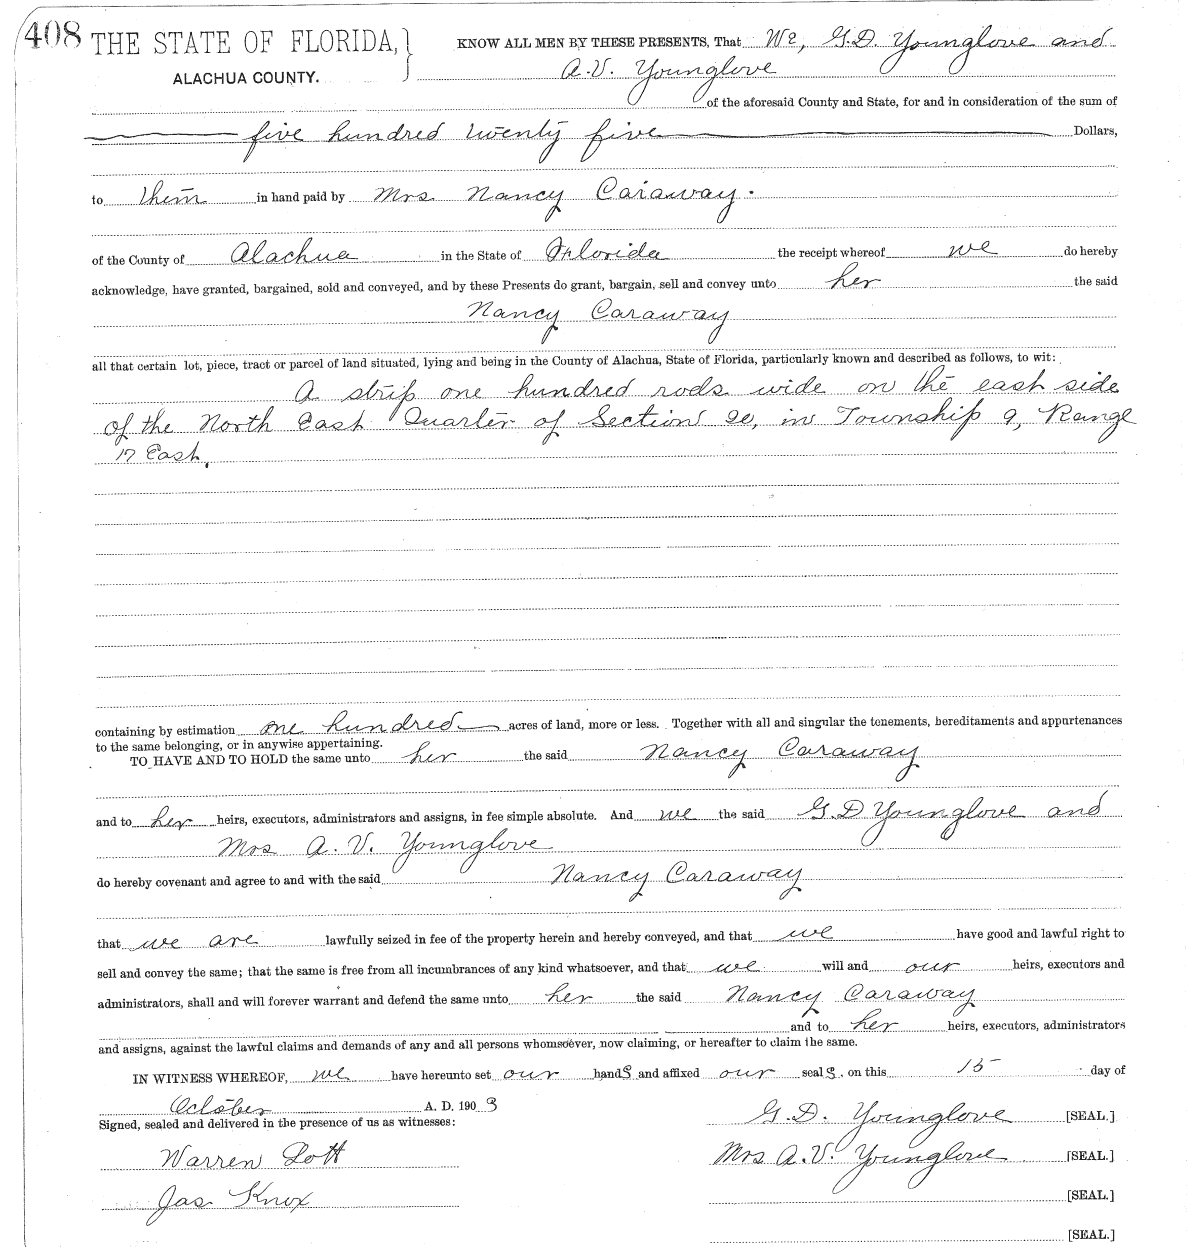 408 THE STATE OF FLORIDA, } KNOW ALL MEN BY THESE PRESENTS, That We, G.D. Younglove and
ALACHUA COUNTY. A.V. Younglove
of the aforesaid County and State, for and in consideration of the sum of
five hundred twenty five Dollars,
to them in hand paid by Mrs Nancy Caraway.
of the County of Alachua in the State of Florida the receipt whereof we do hereby
acknowledge, have granted, bargained, sold and conveyed, and by these Presents do grant, bargain, sell and convey unto her the said
Nancy Caraway
all that certain lot, piece, tract or parcel of land situated, lying and being in the County of Alachua, State of Florida, particularly known and described as follows, to wit:
A strip one hundred rods wide on the east side
of the North East Quarter of Section 20, in Township 9, Range
17 East,
containing by estimation one hundred acres of land, more or less. Together with all and singular the tenements, bereditaments and appurtenances
to the same belonging, or in anywise appertaining.
TO HAVE AND TO HOLD the same unto her the said Nancy Caraway
and to her heirs, executors, administrators and assigns, in fee simple absolute. And we the said G.D Younglove and
Mrs A.V. Younglove
do hereby covenant and agree to and with the said Nancy Caraway
that we are lawfully seized in fee of the property herein and hereby conveyed, and that we have good and lawful right to
sell and convey the same; that the same is free from all incumbrances of any kind whatsoever, and that we will and our heirs, executors and
administrators, shall and will forever warrant and defend the same unto her the said Nancy Caraway
and to her heirs, executors, administrators
and assigns, against the lawful claims and demands of any and all persons whomsoever, now claiming, or hereafter to claim the same.
IN WITNESS WHEREOF, we have hereunto set our hands and affixed our seals, on this 15 day of
October A. D. 1903
Signed, sealed and delivered in the presence of us as witnesses: G.D. Younglove [SEAL.]
Warren Lott Mrs A.V. Younglove [SEAL.]
Jas Knox [SEAL.]
[SEAL.]